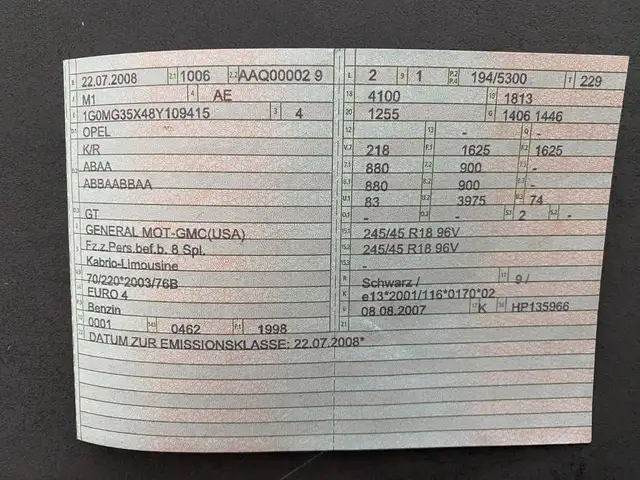 B 22.07.2008 2.1 1006 2.2 AAQ00002 9 L 2 9 1 P.2 P.4 194/5300 T 229
J M1 4 AE 18 4100 19 1813
E 1G0MG35X48Y109415 3 4 20 1255 G 1406 1446
D.1 OPEL 12 - 13 - Q -
K/R V.7 218 F.1 1625 F.2 1625
D.2 ABAA 7.1 880 7.2 900 7.3 -
ABBAABBAA 8.1 880 8.2 900 8.3 -
U.1 83 U.2 3975 U.3 74
D.3 GT O.1 - O.2 - S.1 2 S.2 -
2 GENERAL MOT-GMC(USA) 15.1 245/45 R18 96V
5 Fz.z.Pers.bef.b. 8 Spl. 15.2 245/45 R18 96V
Kabrio-Limousine 15.3 -
70/220*2003/76B R Schwarz / 11 9 /
EURO 4 K e13*2001/116*0170*02
P.3 Benzin 6 08.08.2007 17 K 16 HP135966
10 0001 14.1 0462 P.1 1998 21
22 DATUM ZUR EMISSIONSKLASSE: 22.07.2008*